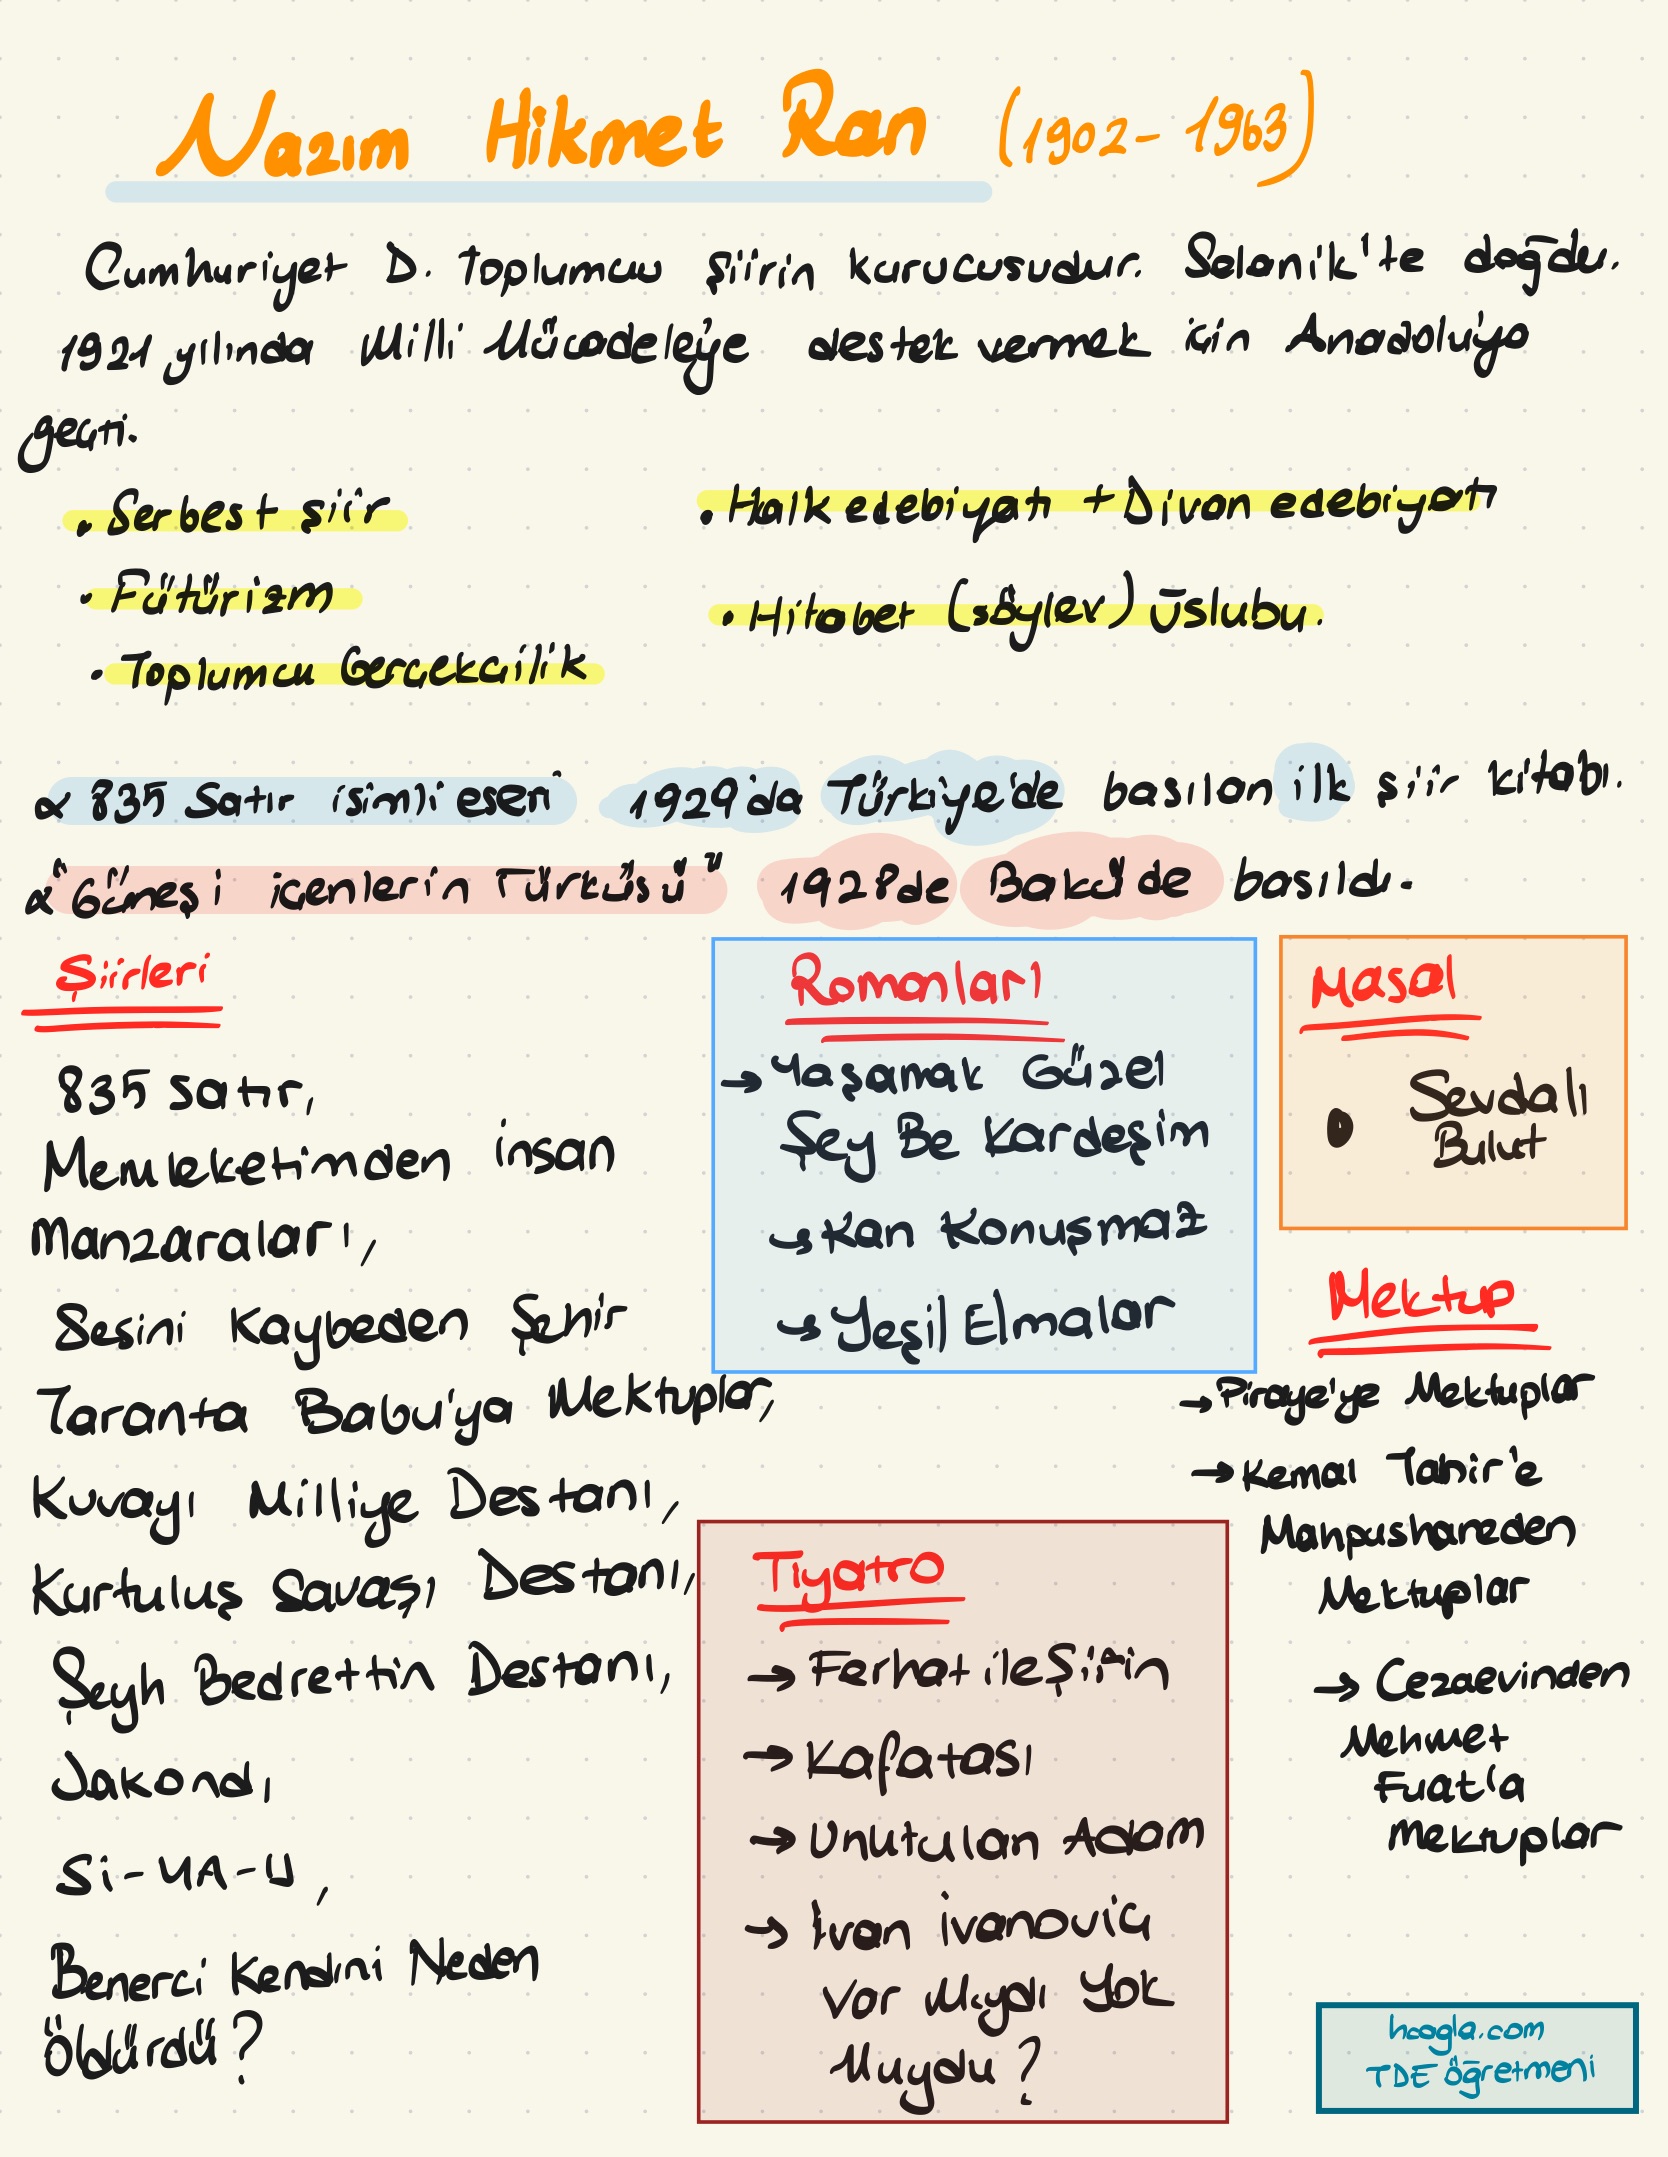 Nazım Hikmet Ran (1902-1963)
Cumhuriyet D. toplumcu şiirin kurucusudur. Selanik'te doğdu.
1921 yılında Milli Mücadele'ye destek vermek için Anadolu'ya
geçti.
. Serbest şiir
. Fütürizm
. Toplumcu Gerçekçilik
. Halk edebiyatı + Divan edebiyatı
. Hitabet (söylev) üslubu.
α 835 Satır isimli eseri 1929'da Türkiye'de basılan ilk şiir kitabı.
α "Güneşi içenlerin Türküsü" 1928de Bakü'de basıldı.
Şiirleri
835 satır,
Memleketimden insan
manzaraları,
Sesini Kaybeden Şehir
Taranta Babu'ya Mektuplar,
Kuvayı Milliye Destanı,
Kurtuluş Savaşı Destanı,
Şeyh Bedrettin Destanı,
Jakond,
Si-YA-U,
Benerci Kendini Neden
öldürdü?
Romanları
→ Yaşamak Güzel
Şey Be Kardeşim
→ Kan Konuşmaz
→ Yeşil Elmalar
Masal
• Sevdalı
Bulut
Mektup
→ Piraye'ye Mektuplar
→ Kemal Tahir'e
Mahpushaneden
Mektuplar
→ Cezaevinden
Mehmet
Fuat'a
Mektuplar
Tiyatro
→ Ferhat ile Şirin
→ Kafatası
→ Unutulan Adam
→ İvan İvanoviç
Var Mıydı Yok
Muydu?
hoogla.com
TDE öğretmeni